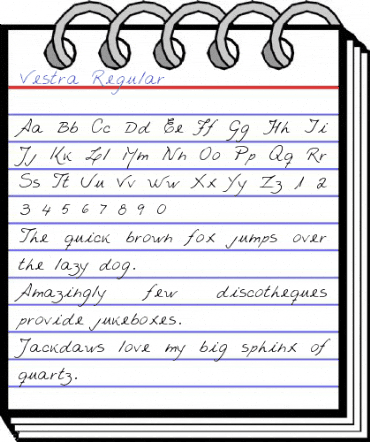 Vestra Regular
Aa Bb Cc Dd Ee Ff Gg Hh Ii
Jj Kk Ll Mm Nn Oo Pp Qq Rr
Ss Tt Uu Vv Ww Xx Yy Zz 1 2
3 4 5 6 7 8 9 0
The quick brown fox jumps over
the lazy dog.
Amazingly few discotheques
provide jukeboxes.
Jackdaws love my big sphinx of
quartz.